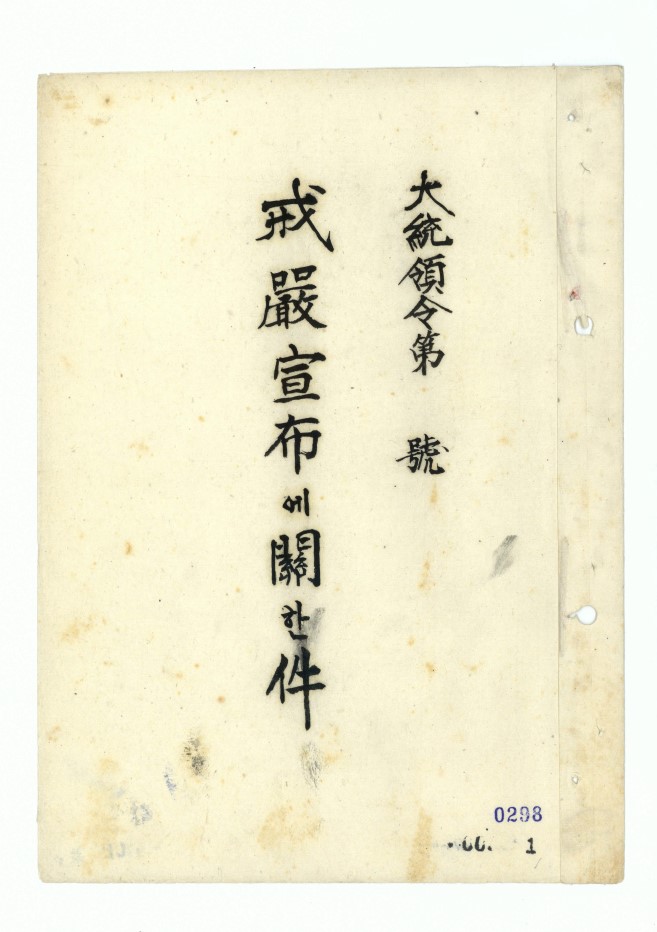 大統領令第 號
戒嚴宣布에關한件
0298
1